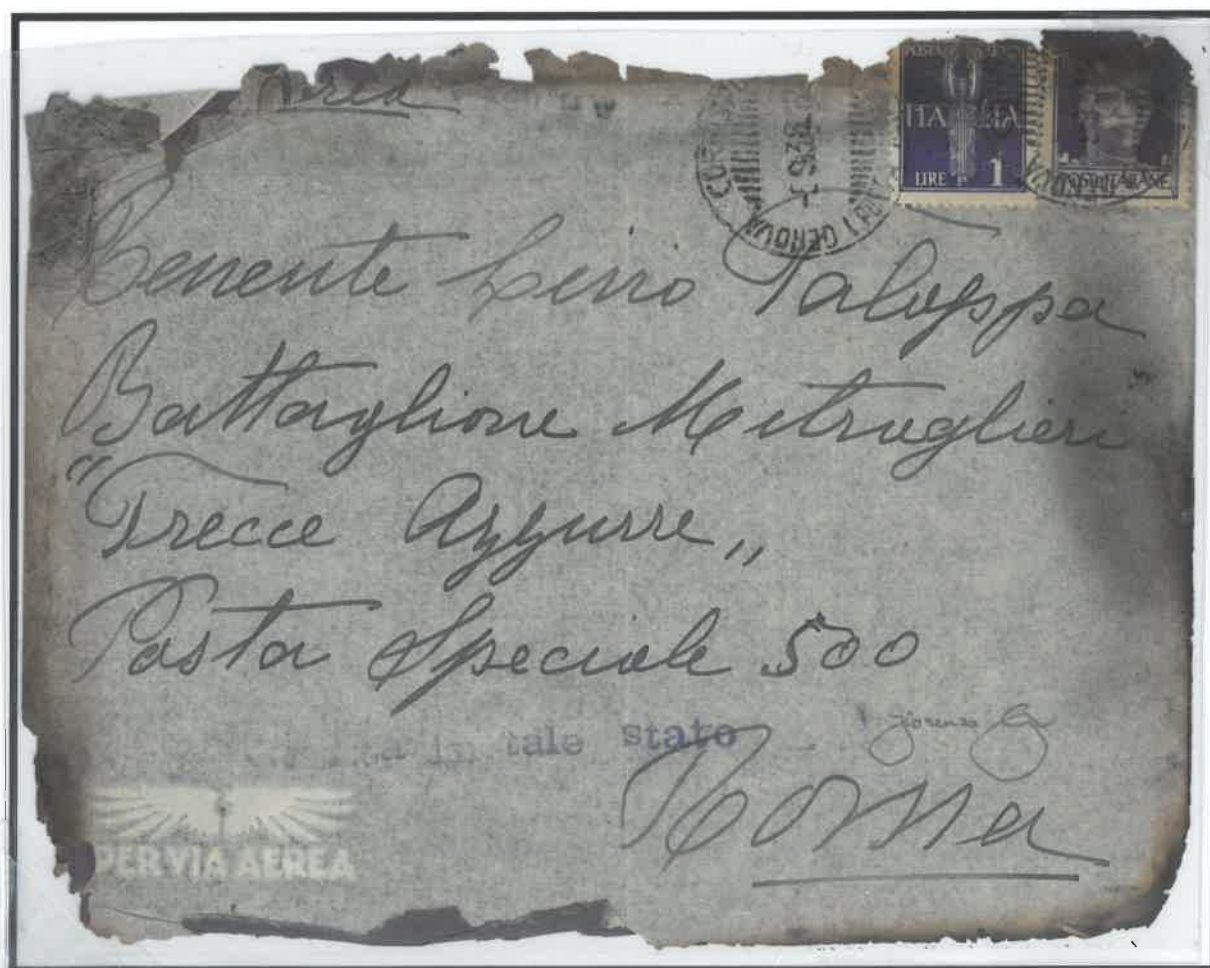 Aerea
POSTE
ITALIA
LIRE 1
POSTE ITALIANE
GENOVA
Tenente Ciro Paloppa
Battaglione Mitraglieri
"Frecce Azzurre"
Posta Speciale 500
in tale stato
Fiorenzo
Roma
PER VIA AEREA